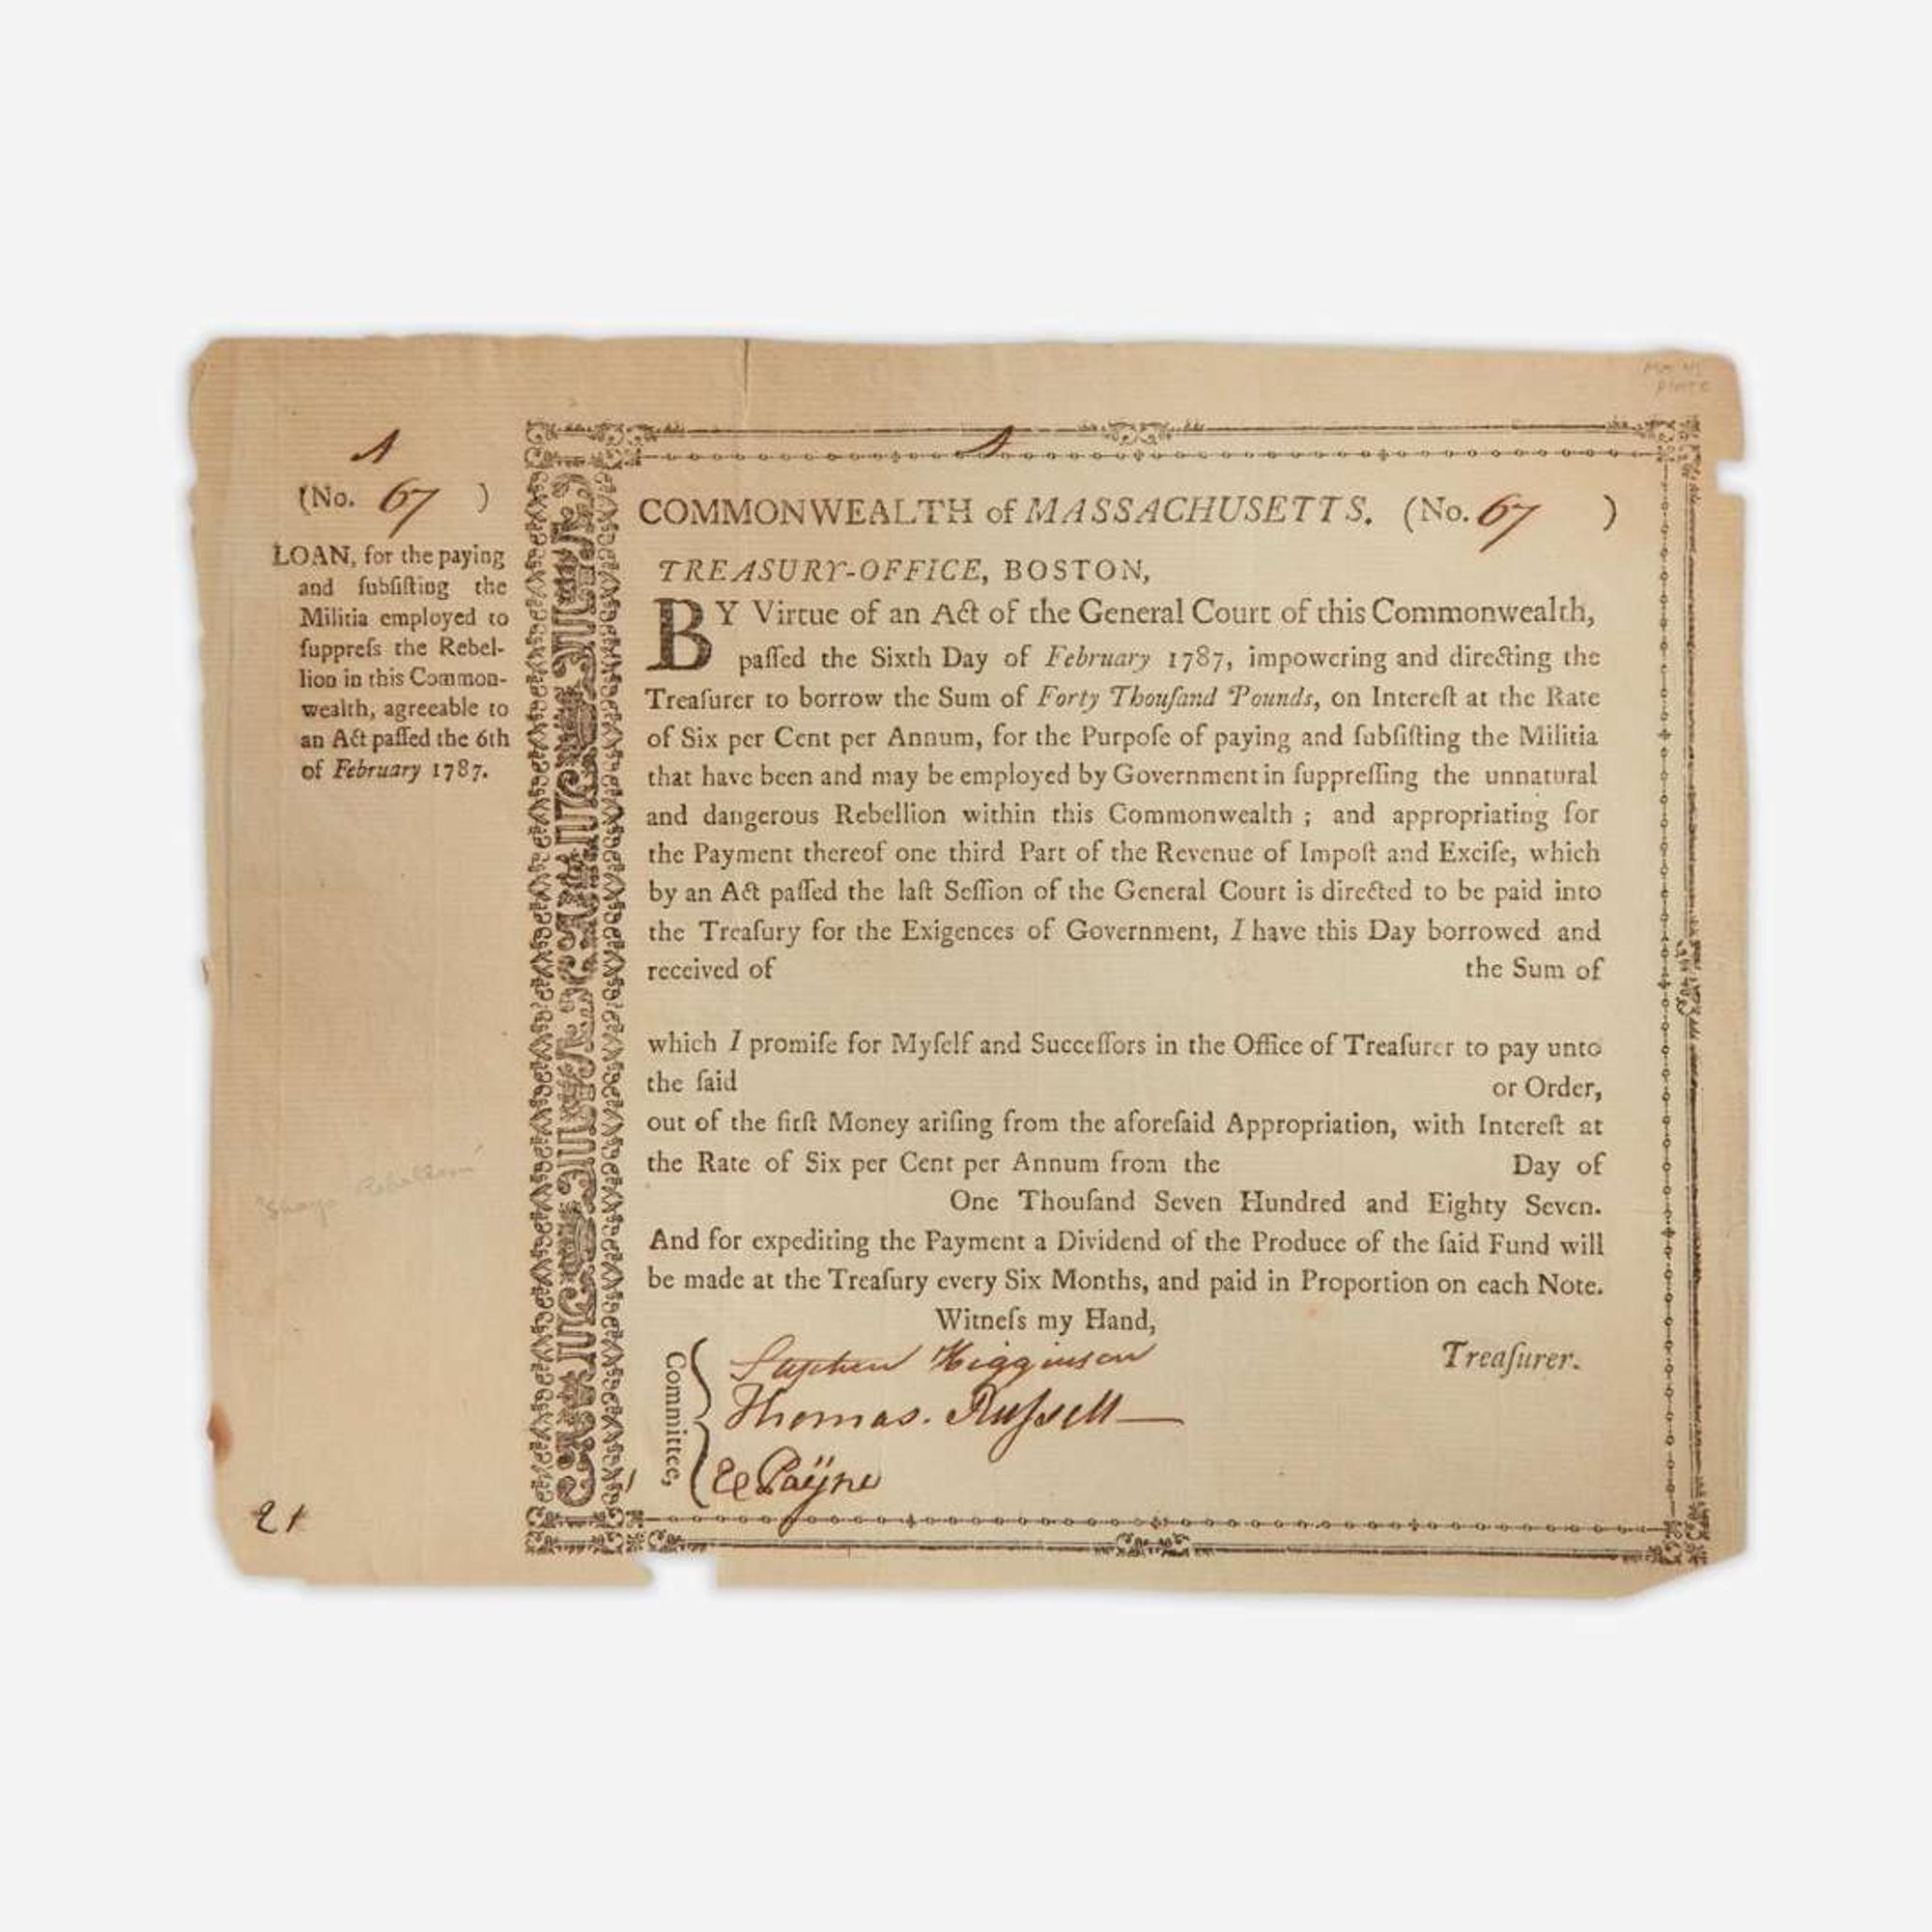 (No. 67 )
LOAN, for the paying
and ſubſiſting the
Militia employed to
ſuppreſs the Rebel-
lion in this Common-
wealth, agreeable to
an Act paſſed the 6th
of February 1787.
21
COMMONWEALTH of MASSACHUSETTS. (No. 67 )
TREASURY-OFFICE, BOSTON,
BY Virtue of an Act of the General Court of this Commonwealth,
paſſed the Sixth Day of February 1787, impowering and directing the
Treaſurer to borrow the Sum of Forty Thouſand Pounds, on Intereſt at the Rate
of Six per Cent per Annum, for the Purpoſe of paying and ſubſiſting the Militia
that have been and may be employed by Government in ſuppreſſing the unnatural
and dangerous Rebellion within this Commonwealth ; and appropriating for
the Payment thereof one third Part of the Revenue of Impoſt and Exciſe, which
by an Act paſſed the laſt Seſſion of the General Court is directed to be paid into
the Treaſury for the Exigences of Government, I have this Day borrowed and
received of the Sum of
which I promiſe for Myſelf and Succeſſors in the Office of Treaſurer to pay unto
the ſaid or Order,
out of the firſt Money ariſing from the aforeſaid Appropriation, with Intereſt at
the Rate of Six per Cent per Annum from the Day of
One Thouſand Seven Hundred and Eighty Seven.
And for expediting the Payment a Dividend of the Produce of the ſaid Fund will
be made at the Treaſury every Six Months, and paid in Proportion on each Note.
Witneſs my Hand,
Treaſurer.
Committee,
Stephen Higginson
Thomas. Ruſsell
E Payne